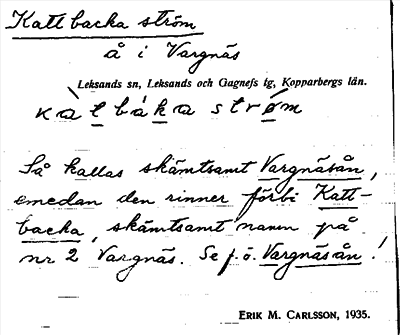 Kattbacka ström
å i Vargnäs
Leksands sn, Leksands och Gagnefs tg, Kopparbergs län.
kàtbáka strøm
Så kallas skämtsamt Vargnäsån,
emedan den rinner förbi Katt-
backa, skämtsamt namn på
nr 2 Vargnäs. Se f. ö. Vargnäsån!
ERIK M. CARLSSON, 1935.